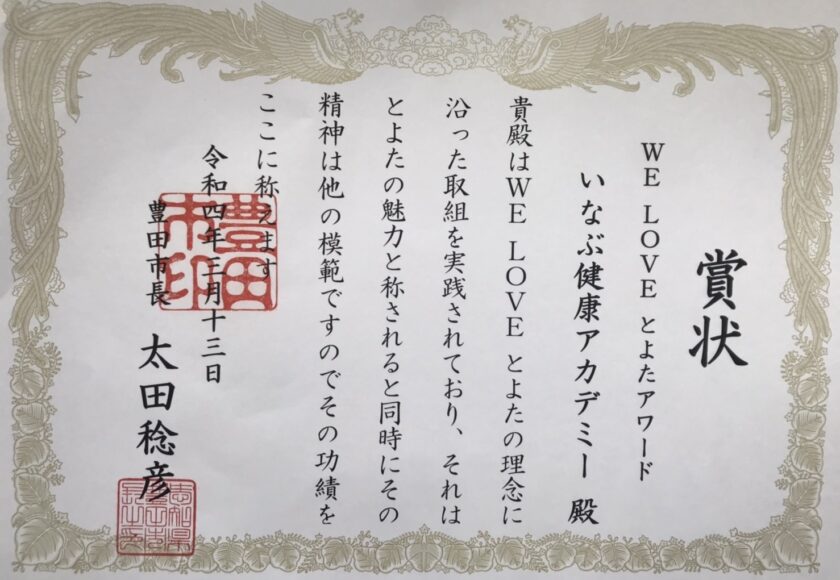 賞状
WE LOVE とよたアワード
いなぶ健康アカデミー 殿
貴殿はWE LOVE とよたの理念に
沿った取組を実践されており、それは
とよたの魅力と称されると同時にその
精神は他の模範ですのでその功績を
ここに称えます
令和四年三月十三日
豊田市長 太田稔彦
豊田市印